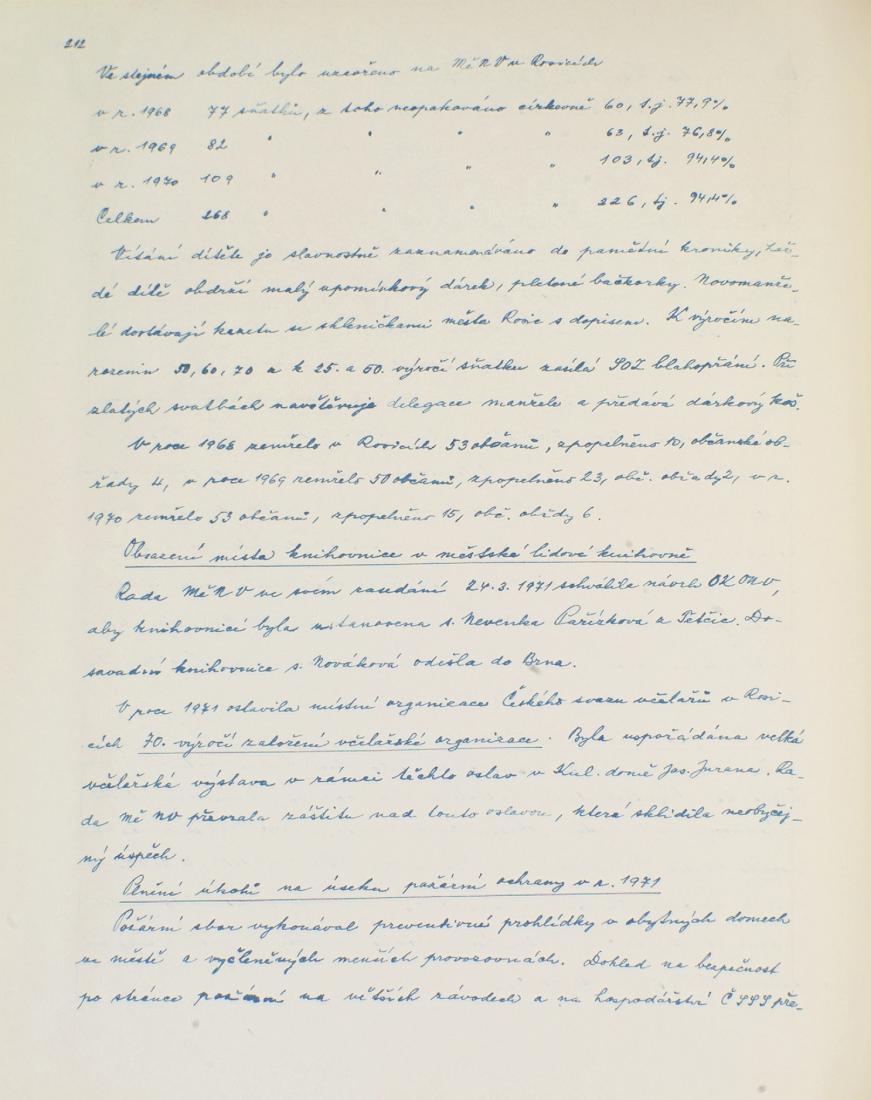 212
Ve stejném období bylo uzavřeno na MěNV v Rosicích
v r. 1968 77 sňatků, z toho neopakováno církevně 60, t.j. 77,9%
v r. 1969 82 " " " " 63, t.j. 76,8%
v r. 1970 109 " " " " 103, tj. 94,4%
Celkem 268 " " " " 226, tj. 94,4%
Vítání dítěte je slavnostně zaznamenáváno do pamětní kroniky, kaž-
dé dítě obdrží malý upomínkový dárek, pletené bačkorky. Novomanže-
lé dostávají kazetu se skleničkami města Rosic s dopisem. K výročím na-
rozenin 50, 60, 70 a k 25. a 50. výročí sňatku zasílá SOZ blahopřání. Při
zlatých svatbách navštěvuje delegace manžele a předává dárkový koš.
V roce 1968 zemřelo v Rosicích 53 občanů, zpopelněno 10, občanské ob-
řady 4, v roce 1969 zemřelo 50 občanů, zpopelněno 23, obč. obřady 2, v r.
1970 zemřelo 53 občanů, zpopelněno 15, obč. obřady 6.
Obsazení místa knihovnice v městské lidové knihovně
Rada MěNV ve svém zasedání 24.3.1971 schválila návrh OK ONV,
aby knihovnicí byla ustanovena s. Nevenka Pařízková z Tetčic. Do-
savadní knihovnice s. Nováková odešla do Brna.
V roce 1971 oslavila místní organizace Českého svazu včelařů v Rosi-
cích 70. výročí založení včelařské organizace. Byla uspořádána velká
včelařská výstava v rámci těchto oslav v Kul. domě Jos. Jurana. Ra-
da Mě NV převzala záštitu nad touto oslavou, která sklidila neobyčej-
ný úspěch.
Plnění úkolů na úseku požární ochrany v r. 1971
Požární sbor vykonával preventivné prohlídky v obytných domech
ve městě a vyčleněných menších provozovnách. Dohled na bezpečnost
po stránce požární na větších závodech a na hospodářství ČSSS pře-